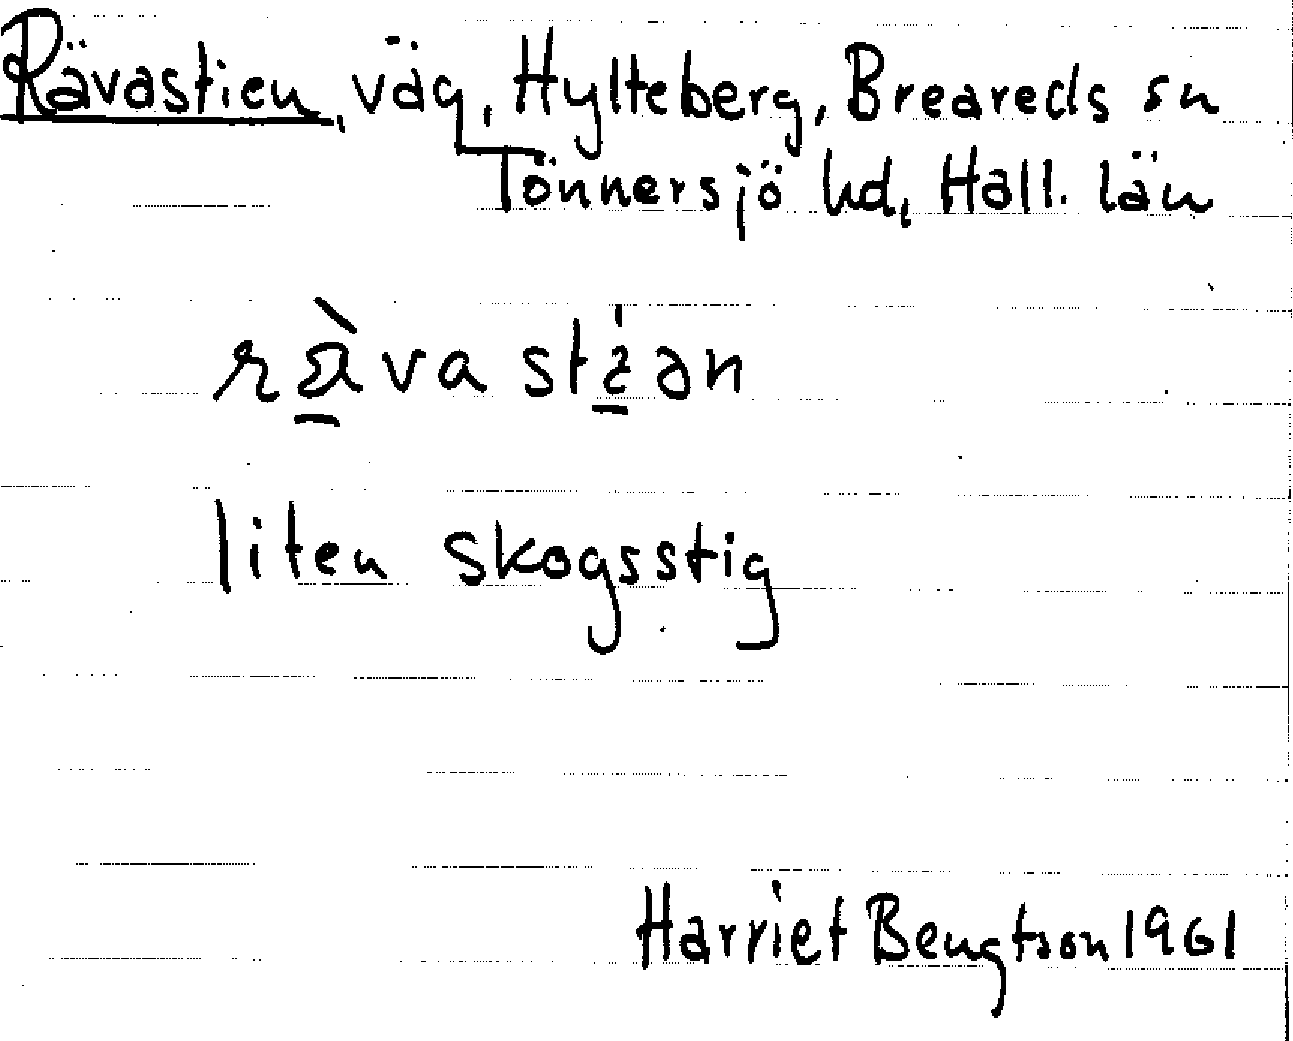 Rävastien, väg, Hylteberg, Breareds sn
Tönnersjö hd, Hall. län
rä̀va stí̱ən
liten skogsstig
Harriet Bengtson 1961